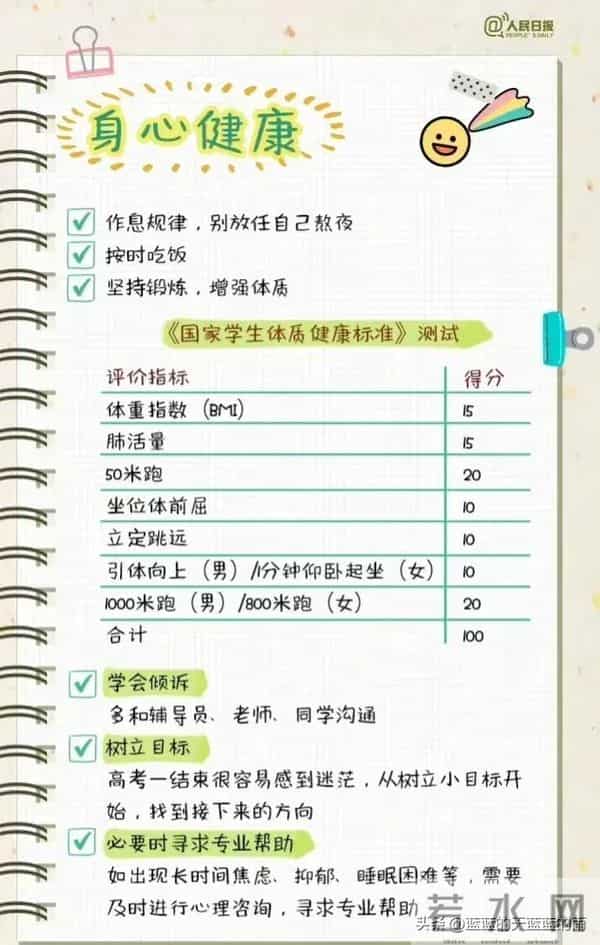 @人民日报
PEOPLE'S DAILY
身心健康
作息规律，别放任自己熬夜
按时吃饭
坚持锻炼，增强体质
《国家学生体质健康标准》测试
评价指标 得分
体重指数（BMI） 15
肺活量 15
50米跑 20
坐位体前屈 10
立定跳远 10
引体向上（男）/1分钟仰卧起坐（女） 10
1000米跑（男）/800米跑（女） 20
合计 100
学会倾诉
多和辅导员、老师、同学沟通
树立目标
高考一结束很容易感到迷茫，从树立小目标开
始，找到接下来的方向
必要时寻求专业帮助
如出现长时间焦虑、抑郁、睡眠困难等，需要
及时进行心理咨询，寻求专业帮助
若水网
头条@蓝蓝的天蓝蓝的